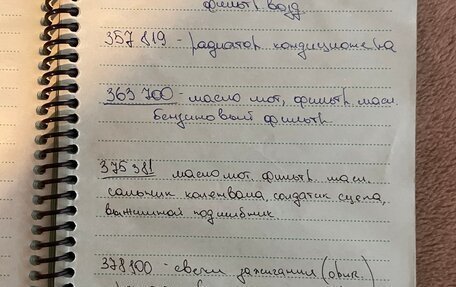 фильтр возд
357 819 - радиатор кондиционера
363 700 - масло мот, фильтр масл
бензиновый фильтр
375 381 масло мот. фильтр масл.
сальник коленвала, солдатик сцепл,
выжимной подшибник
378100 - свечи зажигания (обык.)